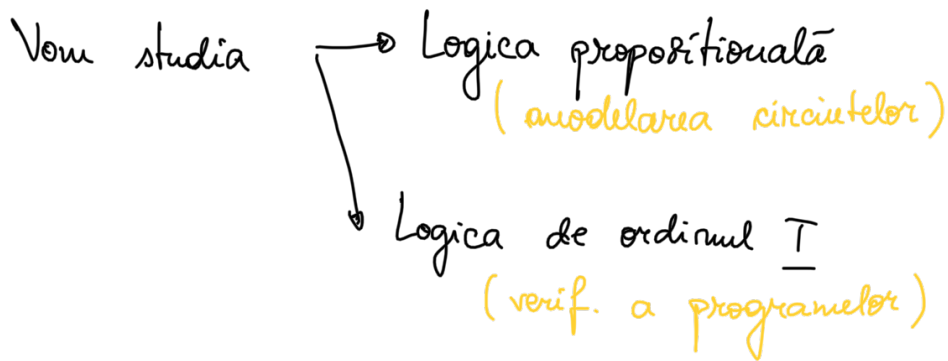 Vom studia → Logica propozițională
(modelarea circuitelor)
Logica de ordinul I
(verif. a programelor)